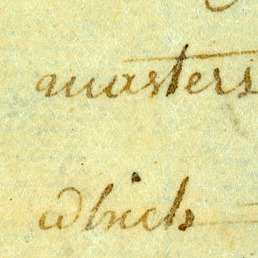 masters
which